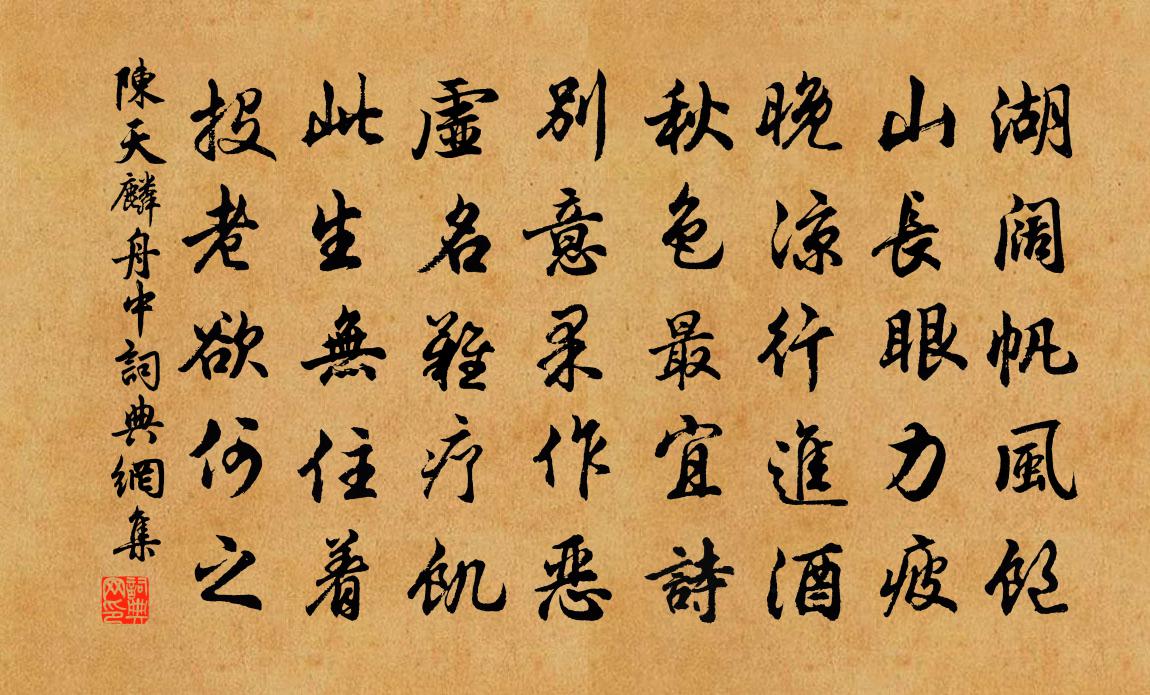 湖阔帆風飽
山長眼力疲
晚凉行進酒
秋色最宜詩
別意柔作惡
虛名難疗飢
此生無住着
投老欲何之
陳天麟舟中詞典網集
詞典网印